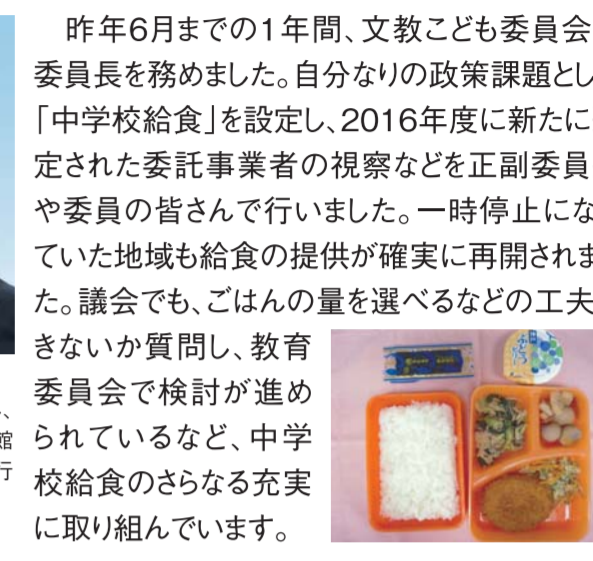 昨年6月までの1年間、文教こども委員会
委員長を務めました。自分なりの政策課題とし
「中学校給食」を設定し、2016年度に新たに
定された委託事業者の視察などを正副委員
や委員の皆さんで行いました。一時停止にな
ていた地域も給食の提供が確実に再開されま
た。議会でも、ごはんの量を選べるなどの工夫
きないか質問し、教育
委員会で検討が進め
られているなど、中学
校給食のさらなる充実
に取り組んでいます。
、
館
行